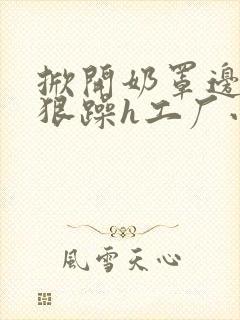 掀開奶罩邊
狠躁h工厂
風雪天心